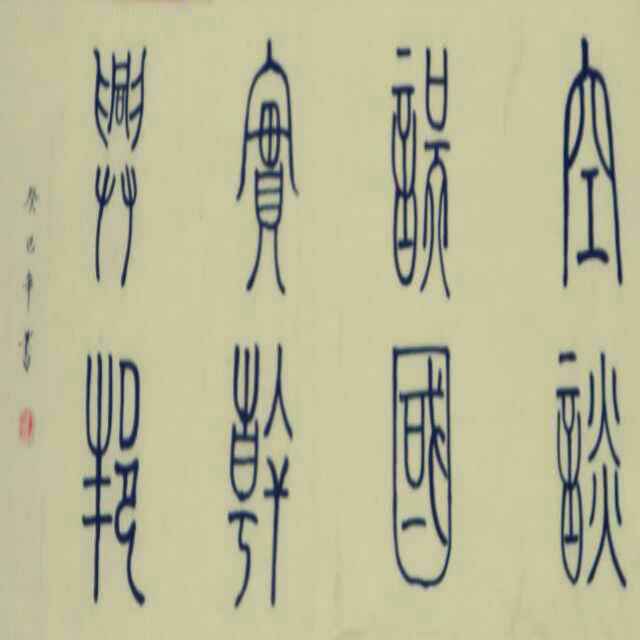 空談
誤國
實幹
興邦
癸巳年